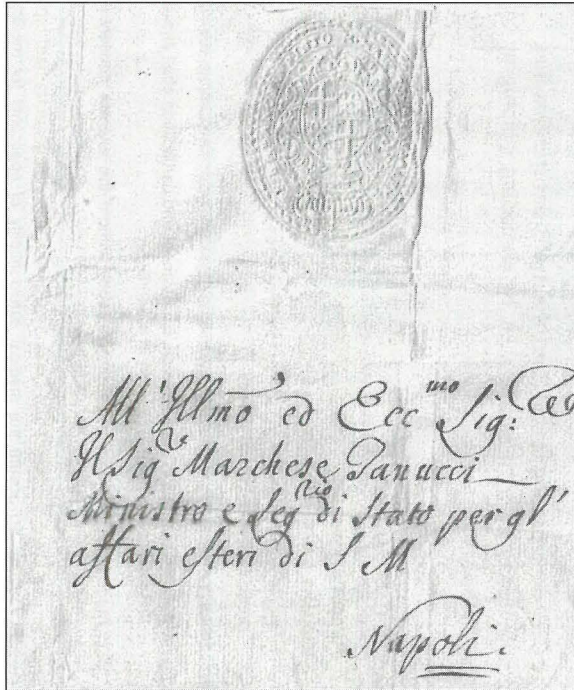 All' Illmo ed Eccmo Sig:re
Il Sigre Marchese Tanucci
Ministro e Segrio di Stato per gl'
affari esteri di S M
Napoli.